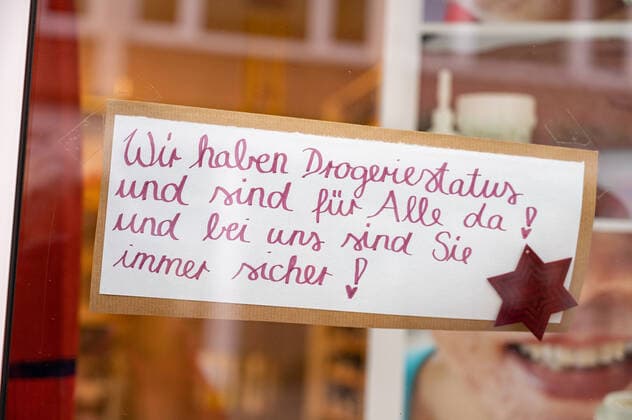 Wir haben Drogeriestatus
und sind für Alle da!
und bei uns sind Sie
immer sicher!